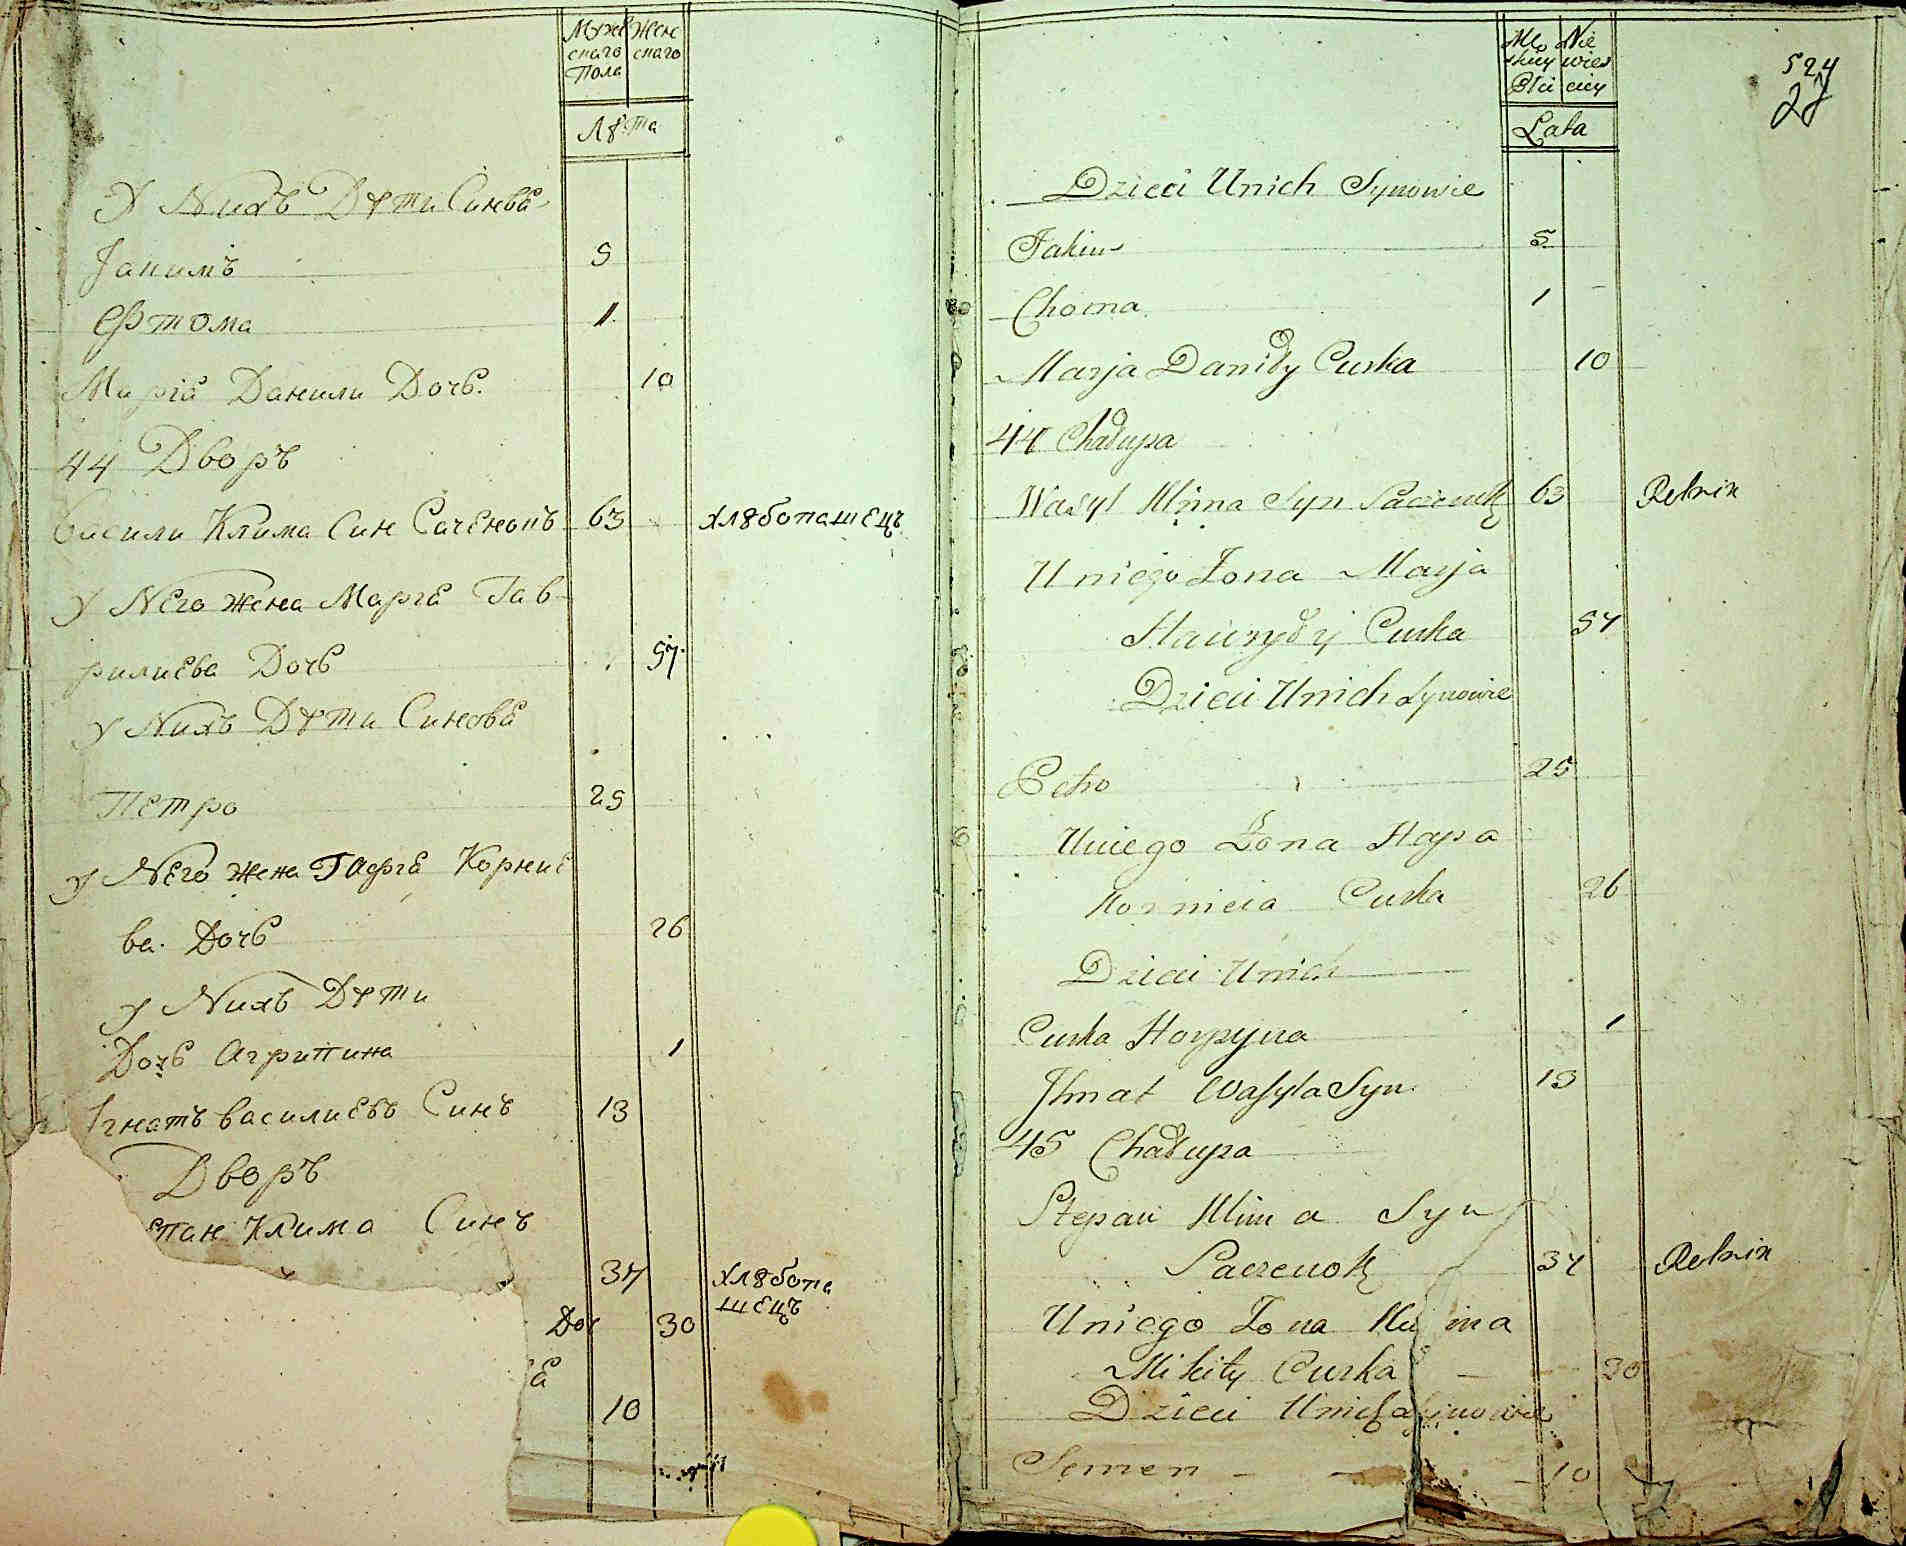 Муже Жен
скаго скаго
Пола
Лѣта
У Нихъ Дѣти Синовѣ
Іакимъ 5
Ѳтома 1
Маріѣ Данили Дочь. 10
44 Дворъ
Васили Клима Син Саченокъ 63 хлѣбопашецъ
У Него жена Маріѣ Гав-
рилиева Дочь 57
У Нихъ Дѣти Синовѣ
Петро 25
У Него жена Корние
ва Дочь 26
У Нихъ Дѣти
Дочь Агрипина 1
Ігнатъ василиевъ Синъ 13
Дворъ
епан Клима Синъ
37 хлѣбопа
шецъ
Доч 30
10
Mę Nie
skiey wies
Płci ciey
Lata
524
Dzieci Unich Synowie
Jakim 5
Choma 1
Marja Daniły Curka 10
44 Chałupa
Wasyl Klima Syn Saczenok 63 Rolnik
Uniego Żona Marja
Hawryły Curka 57
Dzieci Unich Synowie
Petro 25
Uniego Żona Hapa
Kornieia Curka 26
Dzieci Unich
Curka Horpyna 1
Ihnat Wasyla Syn 13
45 Chałupa
Stepan Klima Syn
Saczenok 37 Rolnik
Uniego Żona
Mikity Curka 30
Dzieci Unich Synowie
Semen 10